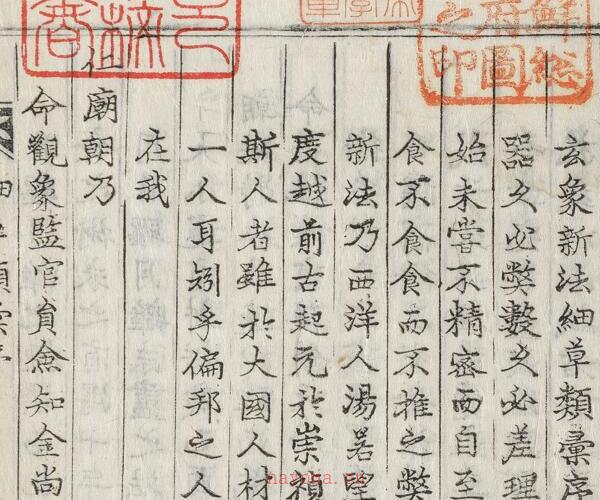 鮮総
府圖
之印
玄象新法細草類彙序
器久必弊數久必差理
始未嘗不精密而自至
食不食食而不推之弊
新法乃西洋人湯若望
度越前古起元於崇禎
斯人者雖於大國人材
一人耳矧乎偏邦之人
在我
仁廟朝乃
命觀象監官員僉知金尚
細草類彙序